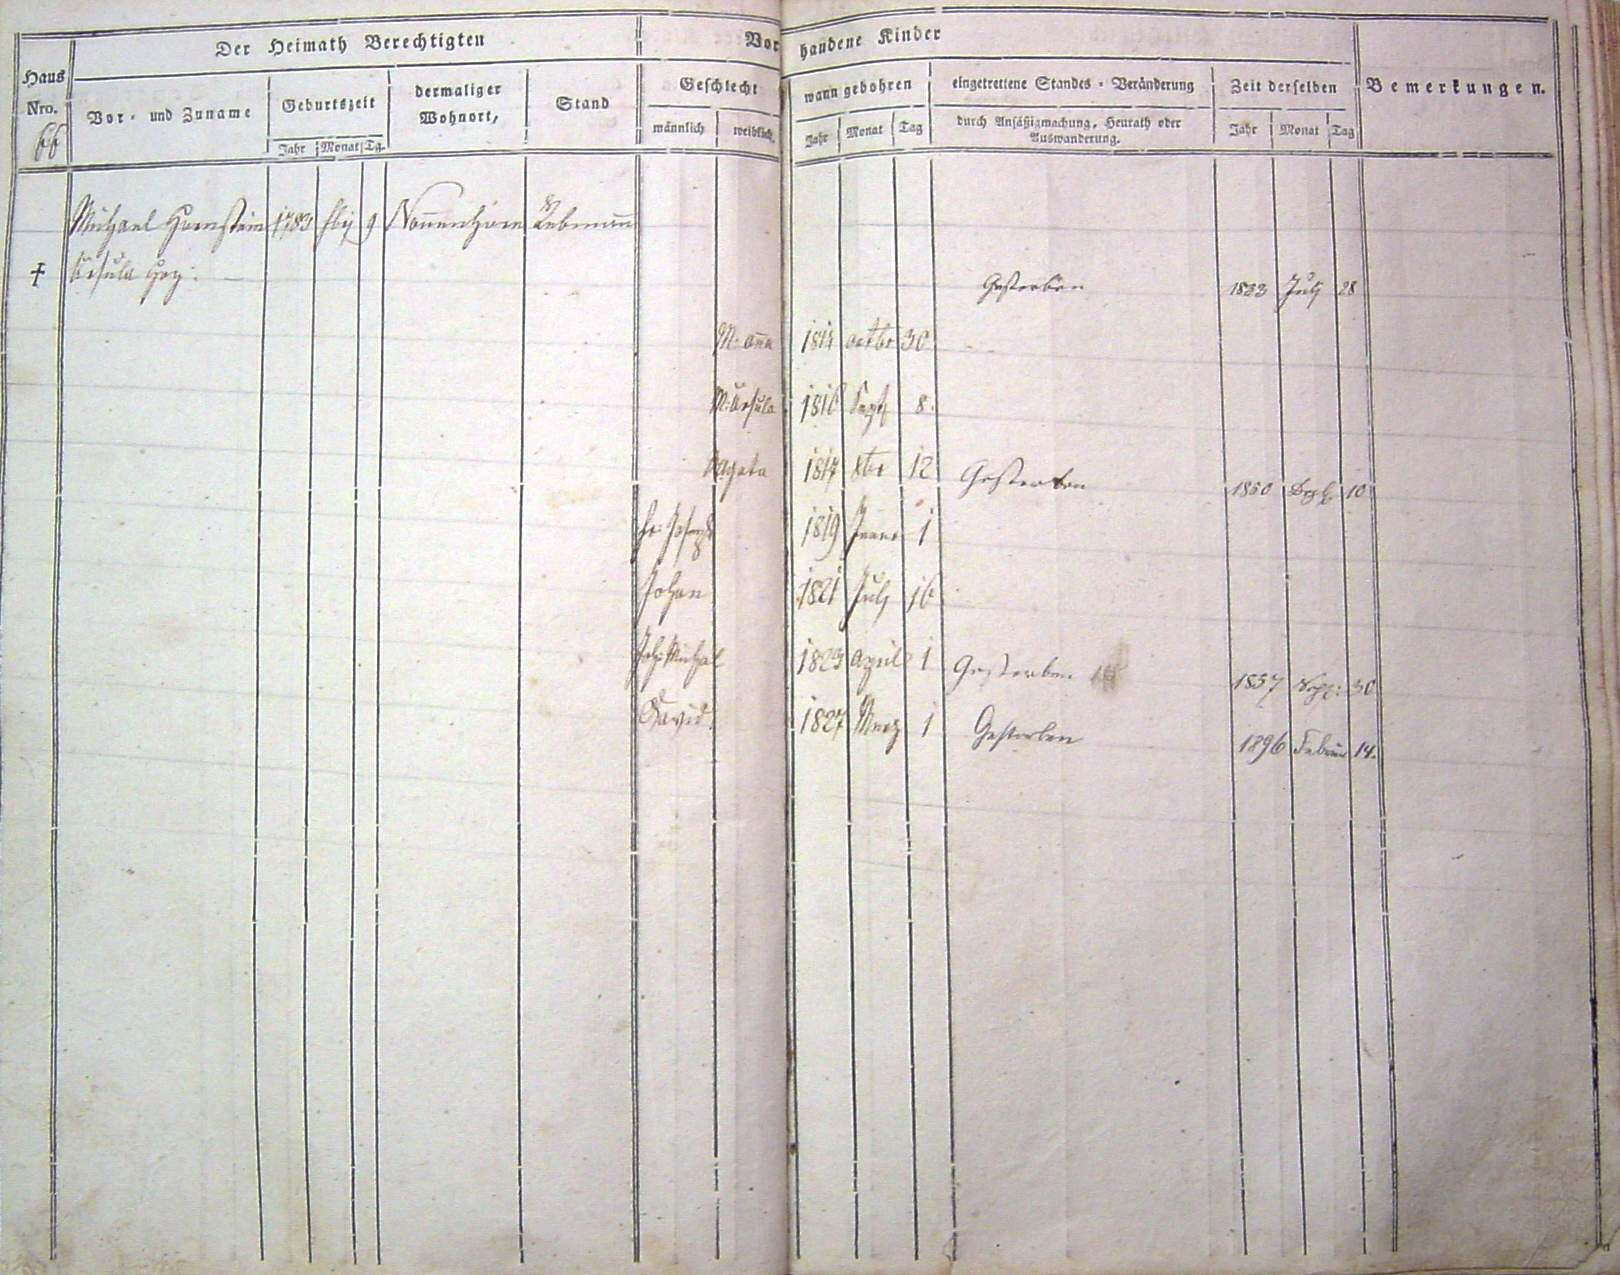 Der Heimath Berechtigten Vorhandene Kinder
Haus Nro. Vor- und Zuname Geburtszeit dermaliger Wohnort, Stand Geschlecht wann gebohren eingetrettene Standes-Veränderung Zeit derselben Bemerkungen.
66 Jahr Monat Tg. männlich weiblich Jahr Monat Tag durch Ansäßigmachung, Heurath oder Auswanderung. Jahr Monat Tag
Michael Hornstein 1783 9 Nonenhorn Rebmann
† Ursula Gestorben 1833 July 28
M: Ana 1814 octbr 30
M: Ursula 1816 Sept 8.
Agata 1817 12 Gestorben 10
Joseph 1819 Jener 1
Johan 1821 July 16
Joh: Michael 1823 April 1 Gestorben 1857 30
David 1827 Merz 1 Gestorben 1896 Februar 14.